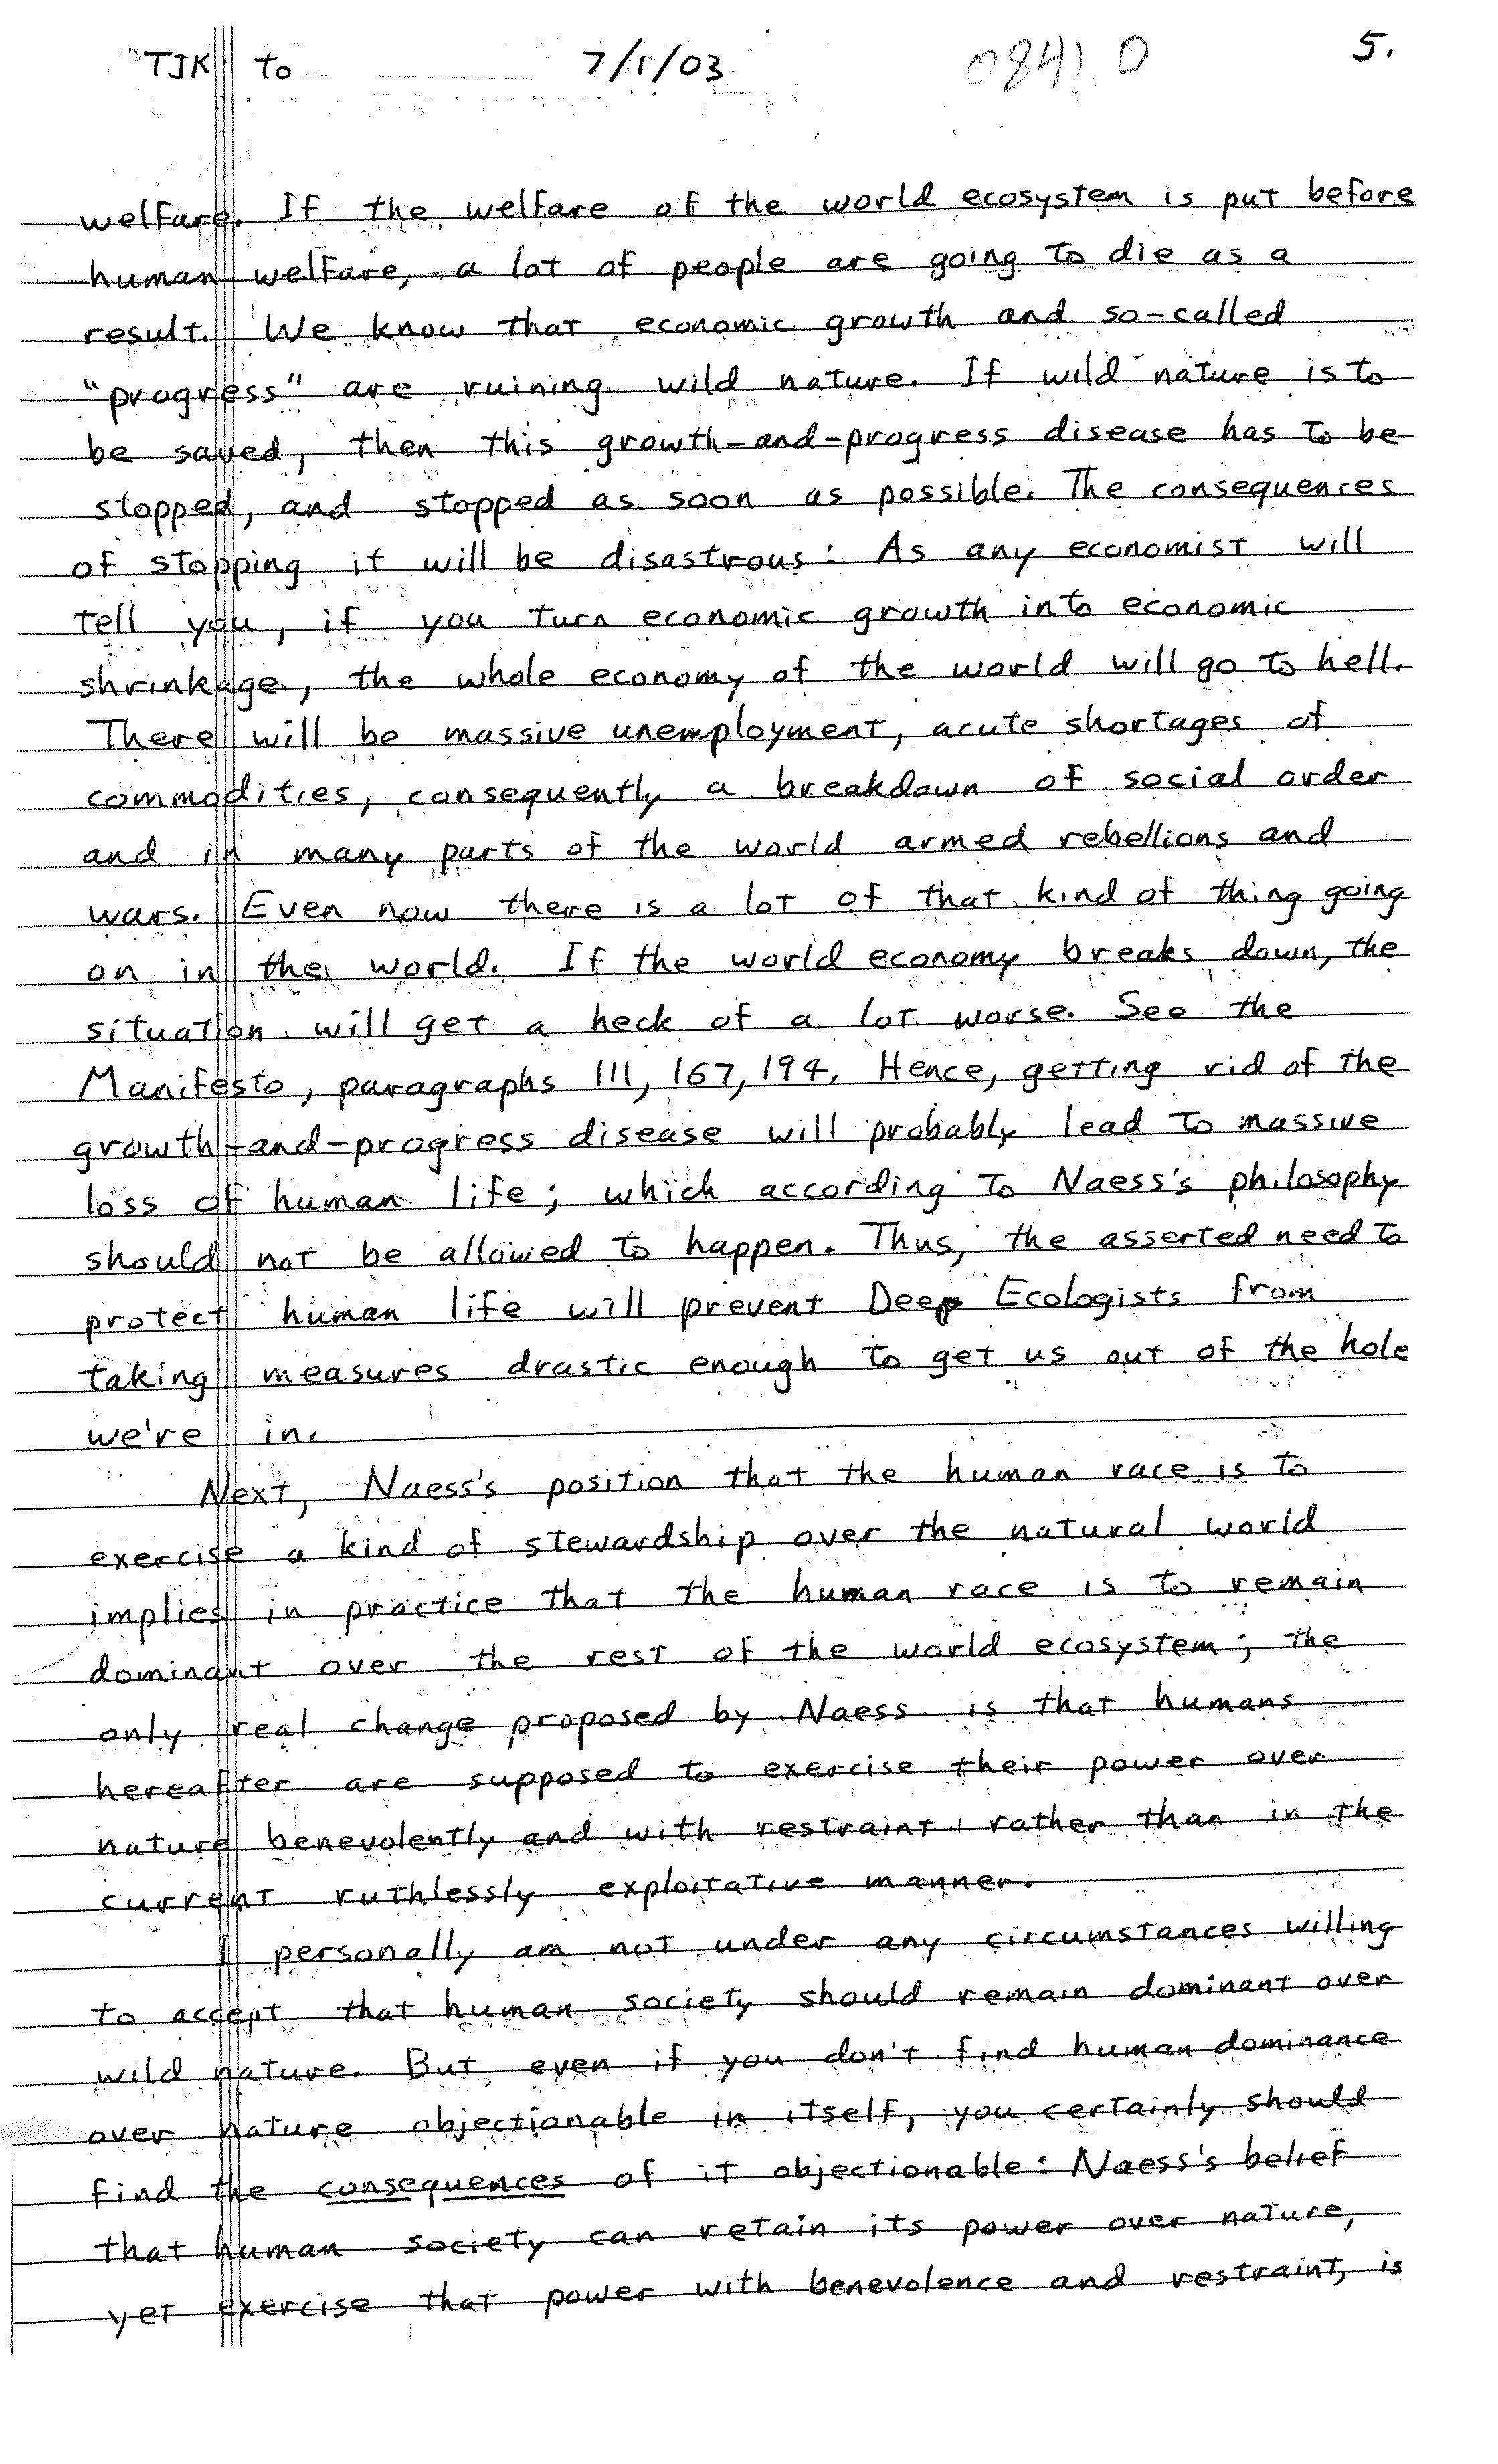 TJK to 7/1/03 5.
welfare. If the welfare of the world ecosystem is put before
human welfare, a lot of people are going to die as a
result. We know that economic growth and so-called
"progress" are ruining wild nature. If wild nature is to
be saved, then this growth-and-progress disease has to be
stopped, and stopped as soon as possible. The consequences
of stopping it will be disastrous: As any economist will
tell you, if you turn economic growth into economic
shrinkage, the whole economy of the world will go to hell.
There will be massive unemployment, acute shortages of
commodities, consequently a breakdown of social order
and in many parts of the world armed rebellions and
wars. Even now there is a lot of that kind of thing going
on in the world. If the world economy breaks down, the
situation will get a heck of a lot worse. See the
Manifesto, paragraphs 111, 167, 194. Hence, getting rid of the
growth-and-progress disease will probably lead to massive
loss of human life; which according to Naess's philosophy
should not be allowed to happen. Thus, the asserted need to
protect human life will prevent Deep Ecologists from
taking measures drastic enough to get us out of the hole
we're in.
Next, Naess's position that the human race is to
exercise a kind of stewardship over the natural world
implies in practice that the human race is to remain
dominant over the rest of the world ecosystem; the
only real change proposed by Naess is that humans
hereafter are supposed to exercise their power over
nature benevolently and with restraint rather than in the
current ruthlessly exploitative manner.
I personally am not under any circumstances willing
to accept that human society should remain dominant over
wild nature. But even if you don't find human dominance
over nature objectionable in itself, you certainly should
find the consequences of it objectionable: Naess's belief
that human society can retain its power over nature,
yet exercise that power with benevolence and restraint, is